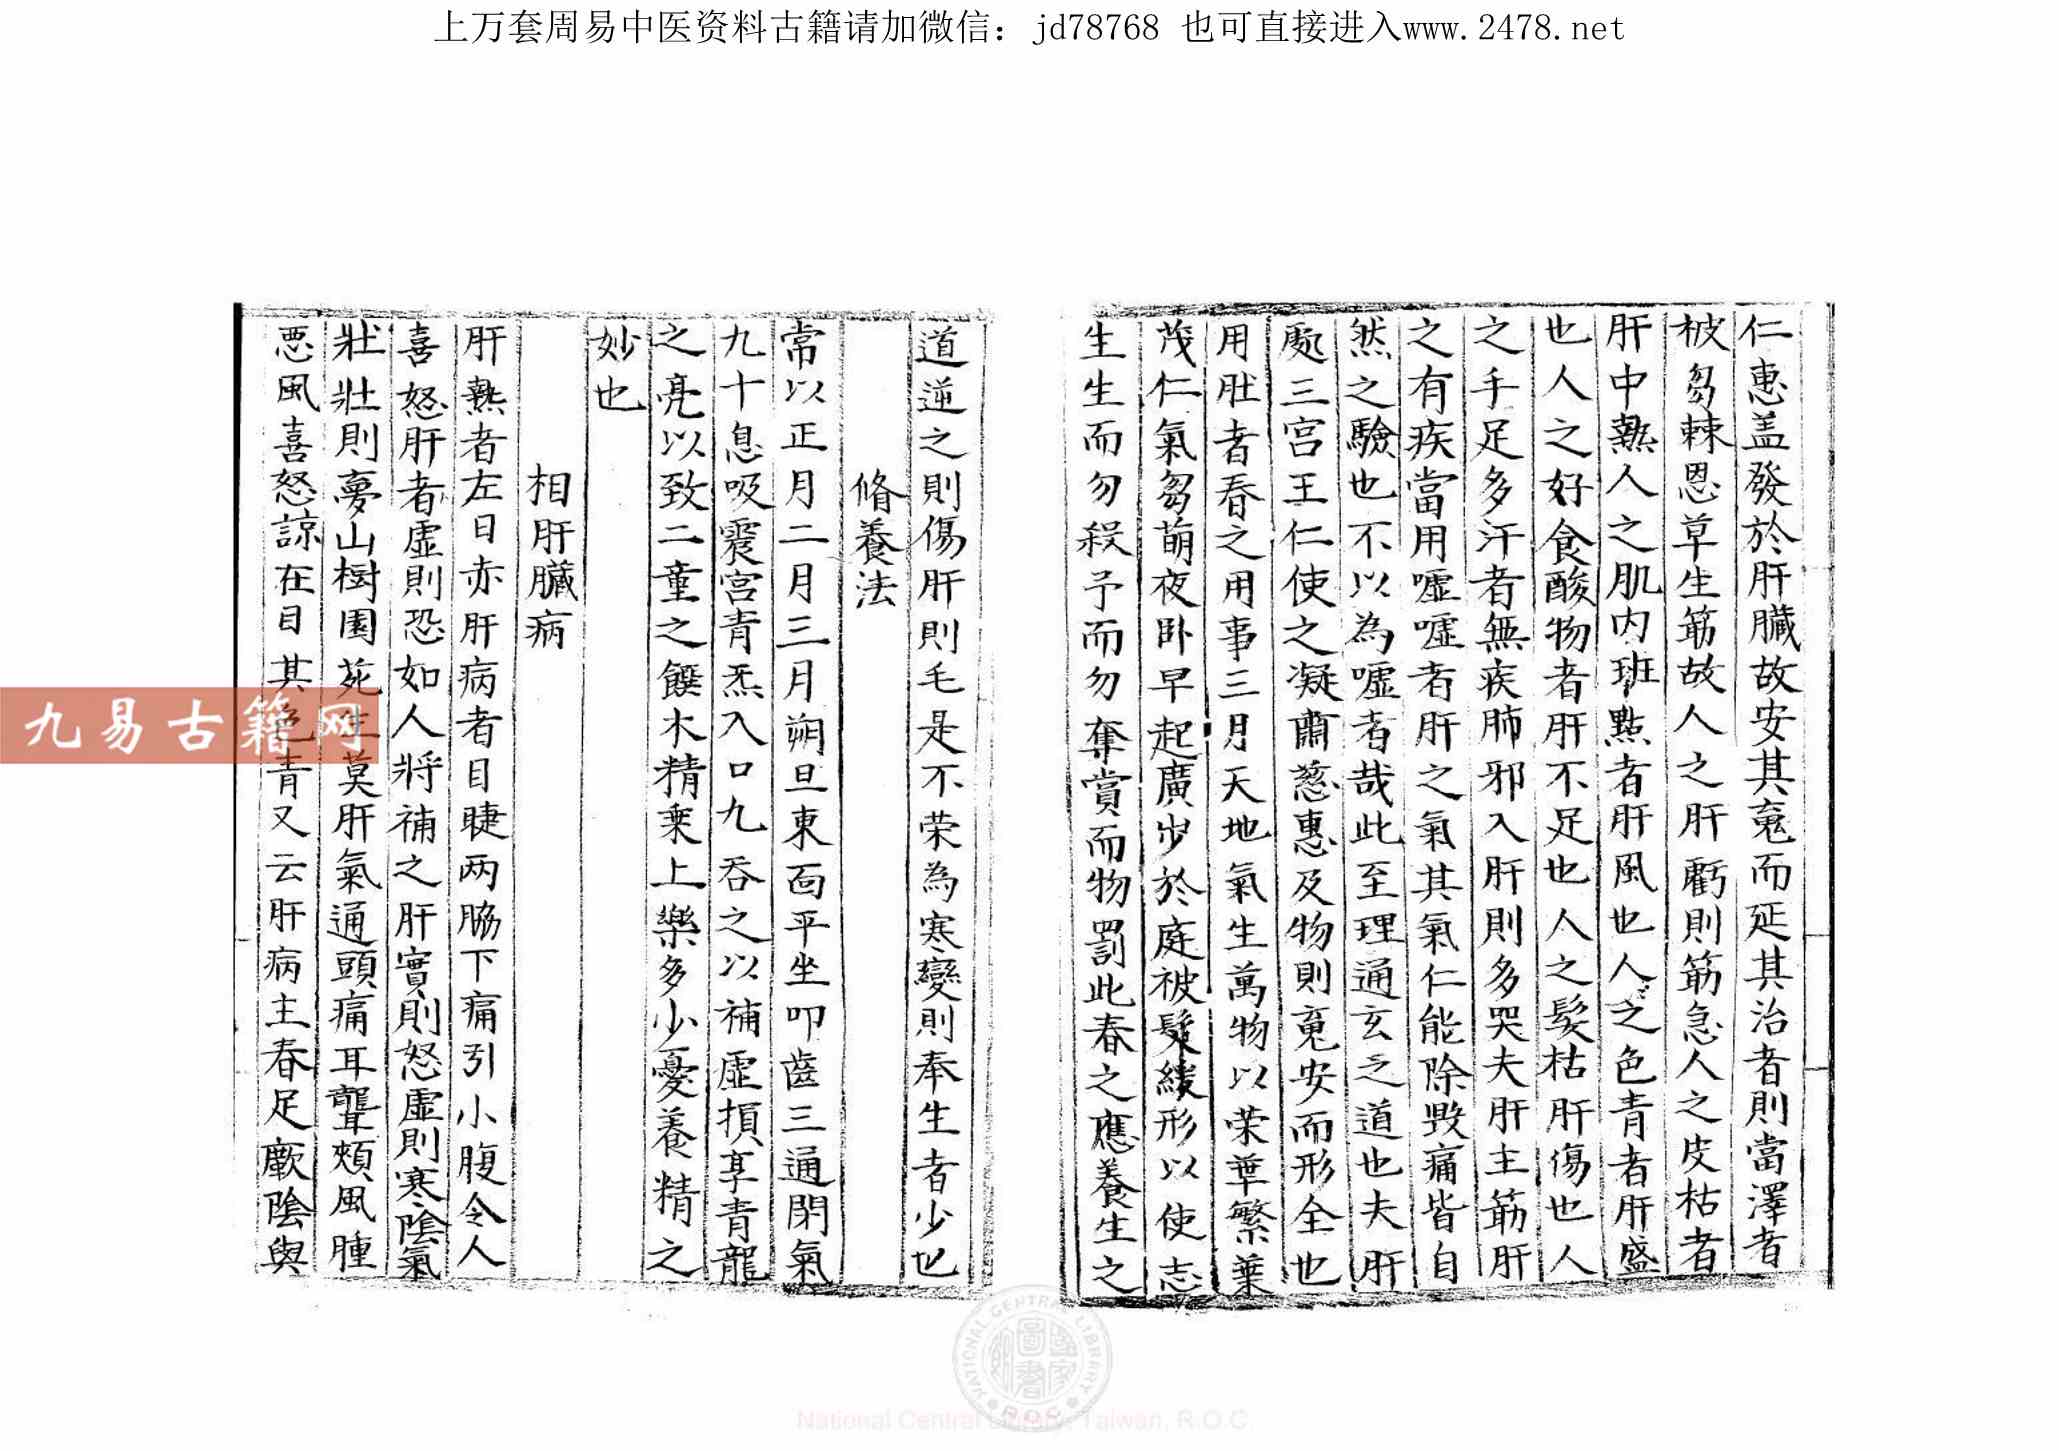 上万套周易中医资料古籍请加微信：jd78768 也可直接进入www.2478.net
仁惠盖發於肝臓故安其䰟而延其治者則當澤者
被芻棘恩草生筋故人之肝虧則筋急人之皮枯者
肝中熱人之肌内班點者肝風也人之色青者肝盛
也人之好食酸物者肝不足也人之髮枯肝傷也人
之手足多汗者無疾肺邪入肝則多哭夫肝主筋肝
之有疾當用噓噓者肝之氣其氣仁能除毀痛皆自
然之驗也不以為噓者哉此至理通玄之道也夫肝
處三宫王仁使之凝肅慈惠及物則䰟安而形全也
用肚者春之用事三月天地氣生萬物以荣華繁葉
茂仁氣芻萌夜卧早起廣步於庭被髮緩形以使志
生生而勿殺予而勿奪賞而物罰此春之應養生之
道逆之則傷肝則毛是不荣為寒變則奉生者少也
脩養法
常以正月二月三月朔旦東面平坐叩齒三通閉氣
九十息吸震宫青炁入口九吞之以補虛損享青龍
之亮以致二童之饌木精乗上樂多少憂養精之
妙也
相肝臓病
肝熱者左日赤肝病者目睫两脇下痛引小腹令人
喜怒肝者虛則恐如人將補之肝實則怒虛則寒陰氣
壯壯則夢山樹園苑生莫肝氣通頭痛耳聾頰風腫
悪風喜怒諒在目其色青又云肝病主春足厥陰與
九易古籍网
NATIONAL CENTRAL LIBRARY R.O.C
National Central Library, Taiwan, R.O.C